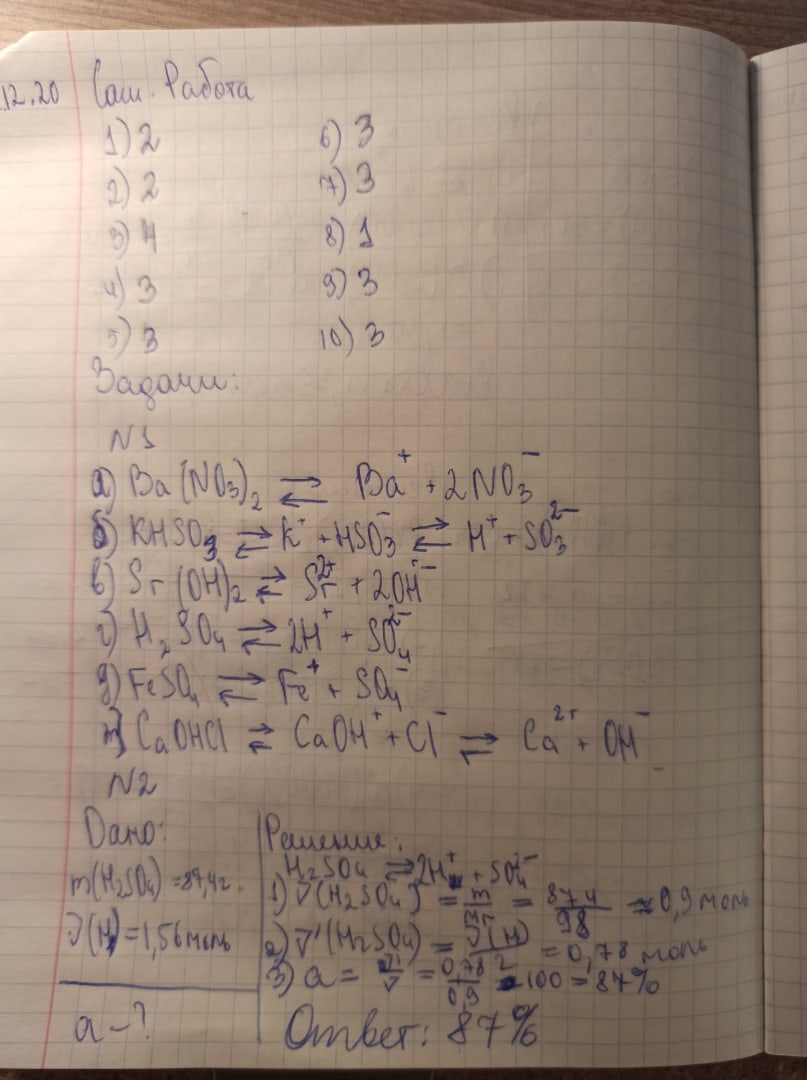 12.20 Сам. Работа
1) 2 6) 3
2) 2 7) 3
3) 4 8) 1
4) 3 9) 3
5) 3 10) 3
Задачи:
N1
а) Ba(NO₃)₂ ⇄ Ba⁺ + 2NO₃⁻
б) KHSO₃ ⇄ K⁺ + HSO₃⁻ ⇄ H⁺ + SO₃²⁻
в) Sr(OH)₂ ⇄ Sr²⁺ + 2OH⁻
г) H₂SO₄ ⇄ 2H⁺ + SO₄²⁻
д) FeSO₄ ⇄ Fe⁺ + SO₄⁻
CaOHCl ⇄ CaOH⁺ + Cl⁻ ⇄ Ca²⁺ + OH⁻
N2
Дано:
m(H₂SO₄) = 87,4г.
ν(H) = 1,56 моль
a - ?
Решение:
H₂SO₄ ⇄ 2H⁺ + SO₄²⁻
1) ν(H₂SO₄) = m/Mr = 874/98 ≈ 0,9 моль
2) ν'(H₂SO₄) = ν(H)/2 = 0,78 моль
3) a = ν'/ν = 0,78/0,9 · 100 = 87%
Ответ: 87%